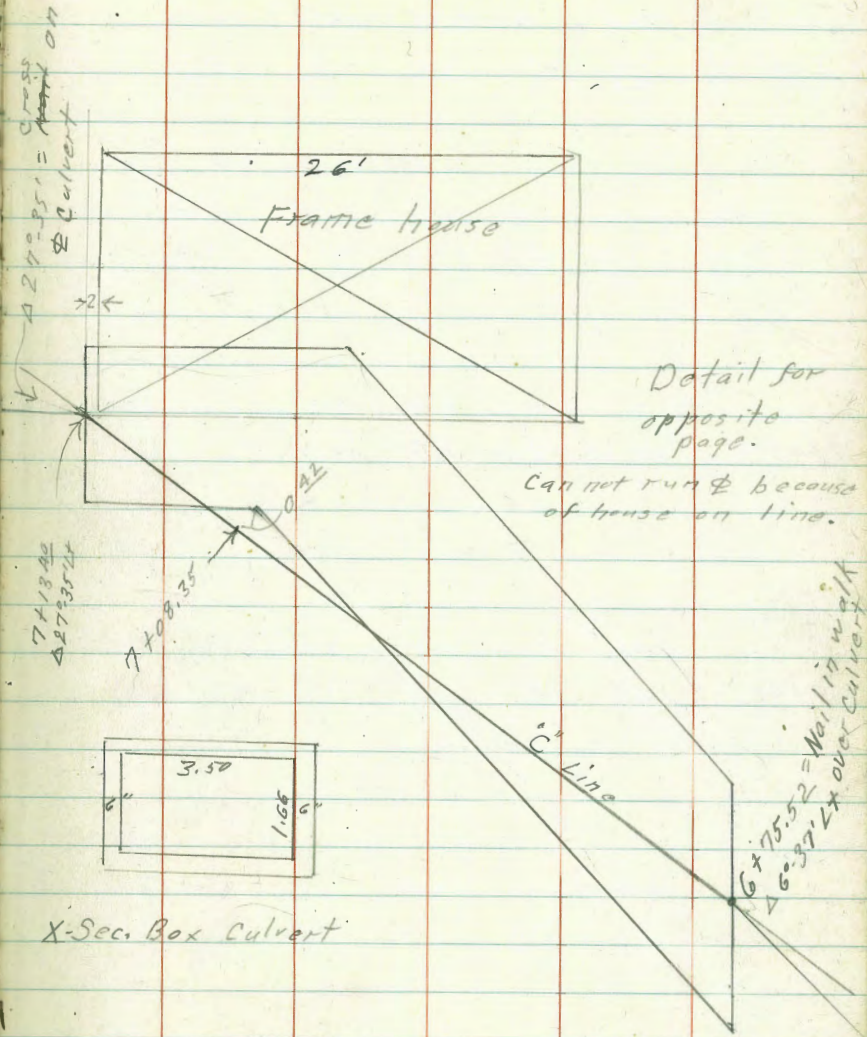 Δ 27°-35' = Cross on
℄ Culvert
26'
Frame house
2
Detail for
opposite
page.
Can not run ℄ because
of house on line.
0.42
7+13.40
Δ27°35' Lt
7+08.35
"C" Line
6+75.52 = Nail in walk
Δ 6°-37' Lt over culvert
3.50
6"
1.66
6"
X-Sec. Box Culvert